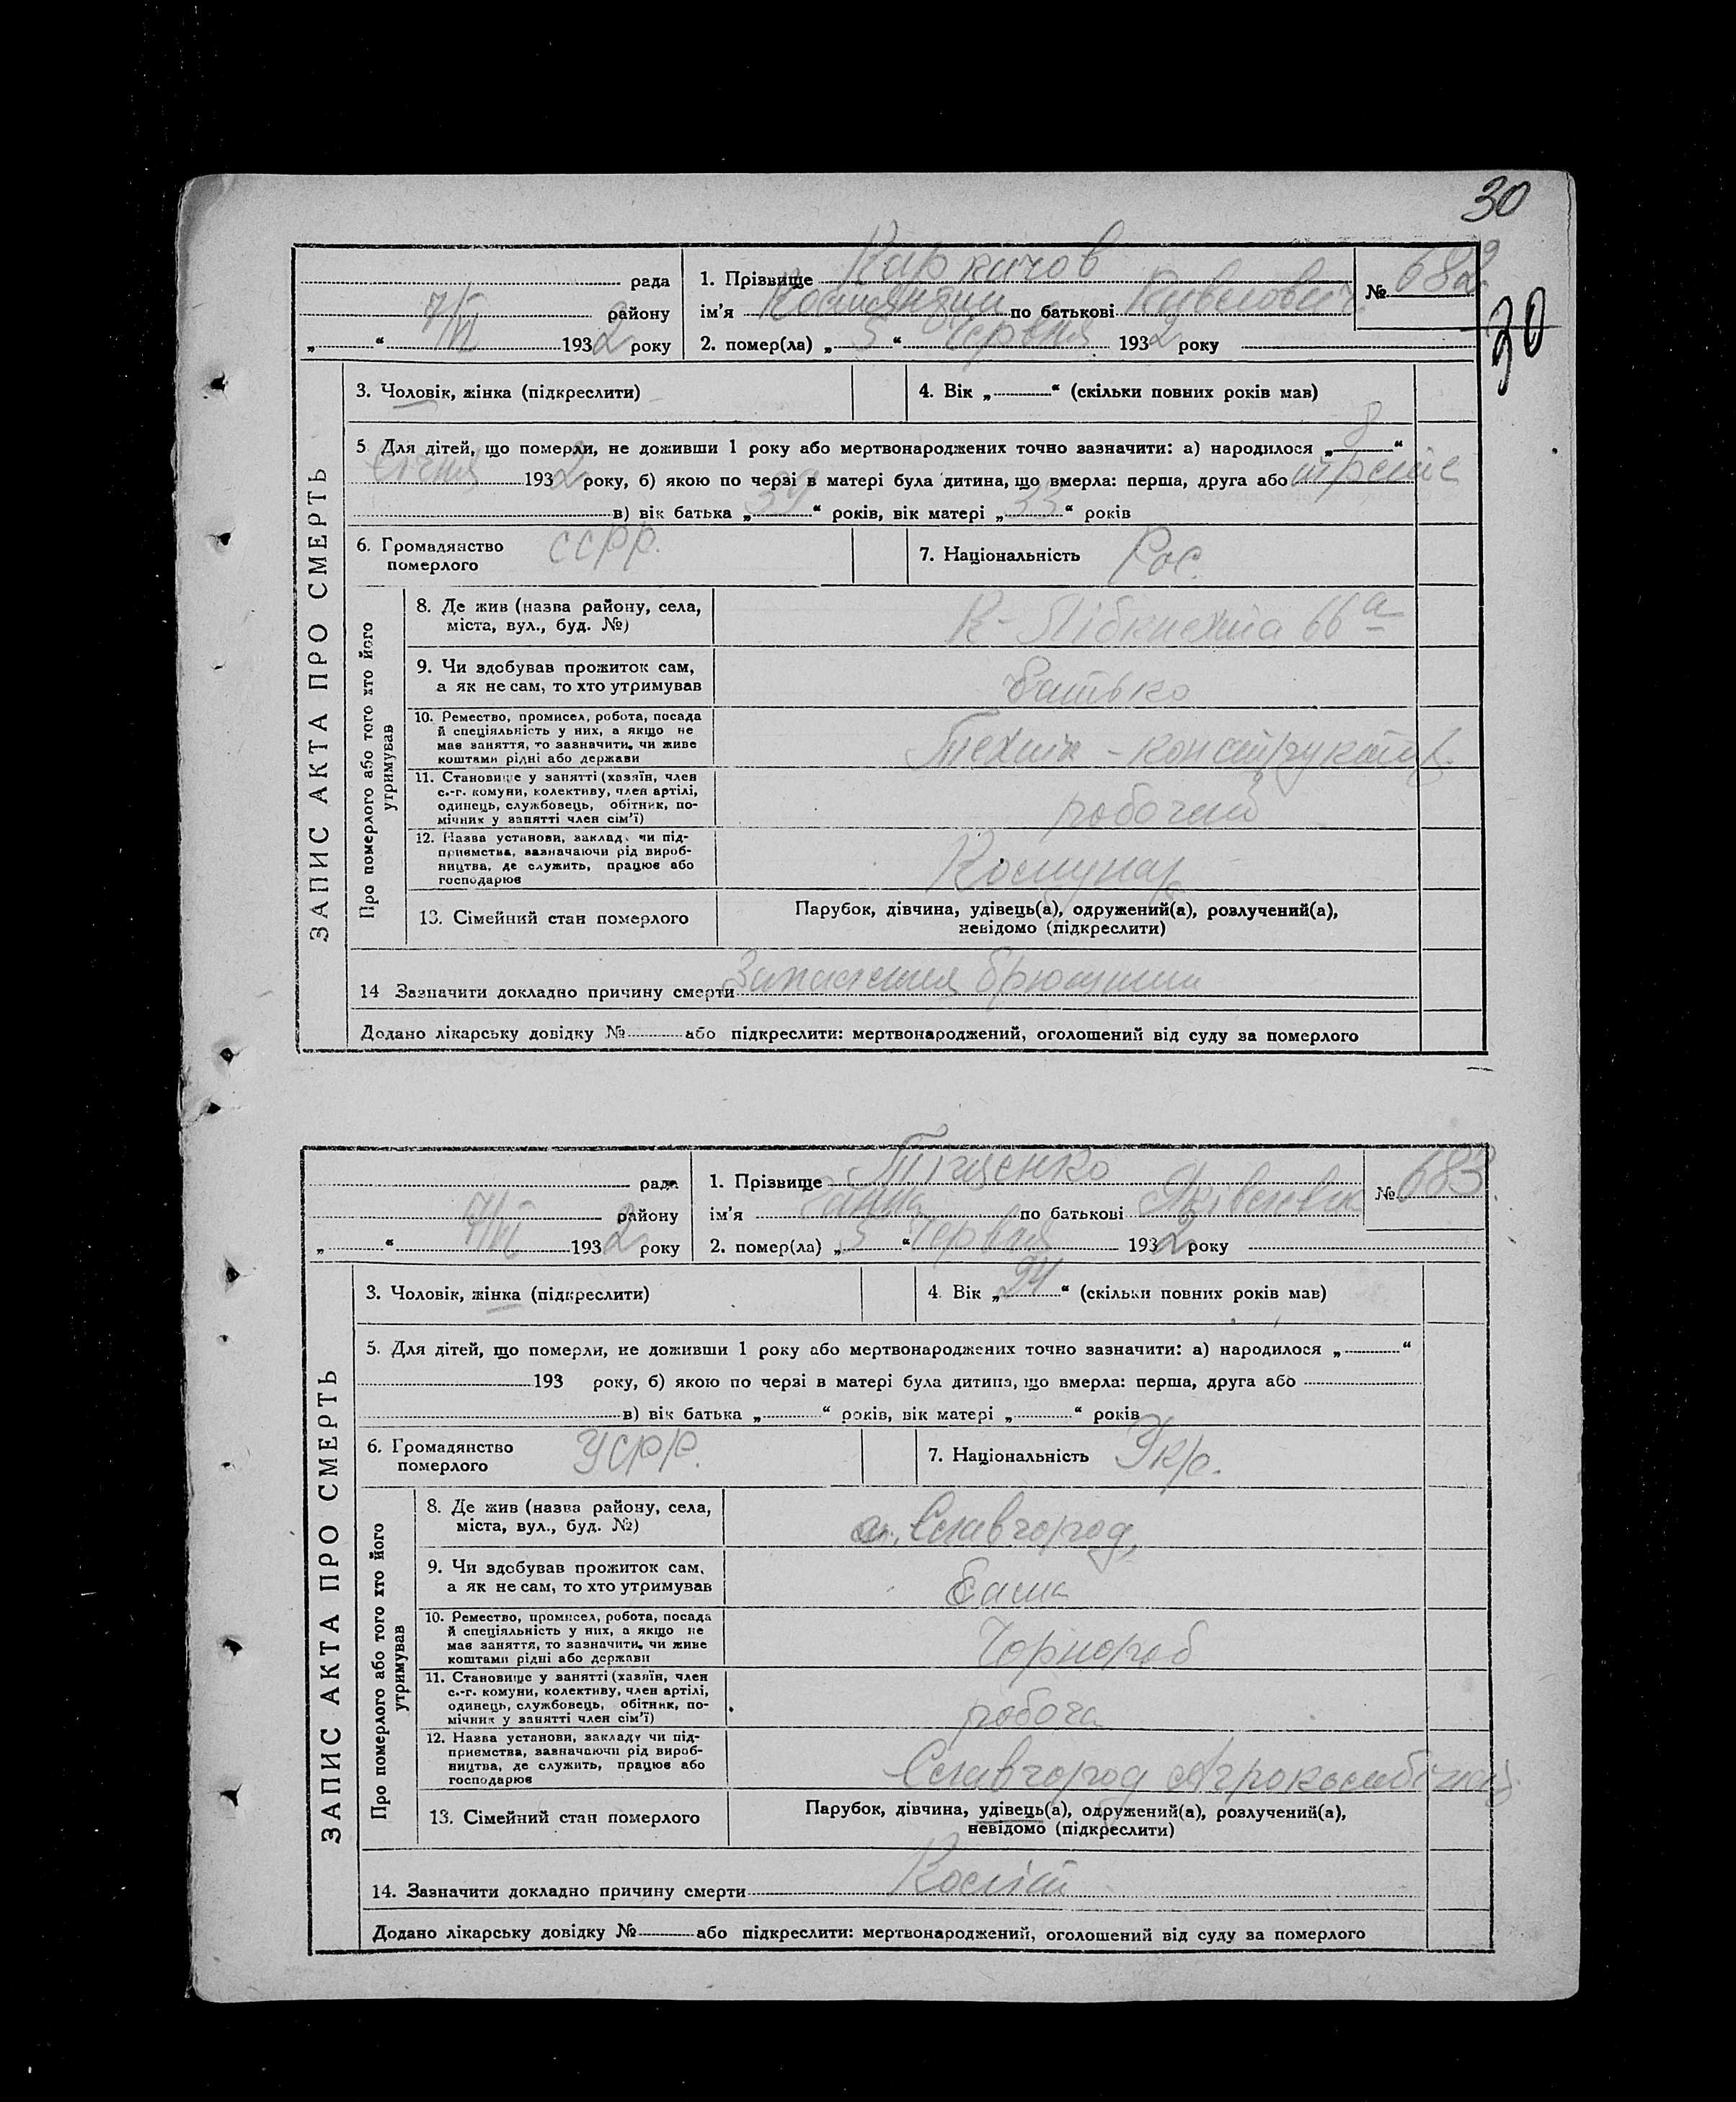 30
рада
7/VI району
„ “ 1932 року
1. Прізвище Каркачов
ім'я Костянтин по батькові
№ 682
30
2. помер(ла) „5“ Червня 1932 року
ЗАПИС АКТА ПРО СМЕРТЬ
3. Чоловік, жінка (підкреслити)
4. Вік „ “ (скільки повних років мав)
5 Для дітей, що померли, не доживши 1 року або мертвонароджених точно зазначити: а) народилося „8“
Січня 1932 року, б) якою по черзі в матері була дитина, що вмерла: перша, друга або третє
в) вік батька „39“ років, вік матері „33“ років
6. Громадянство
померлого
ССРР.
7. Національність Рос.
Про померлого або того хто його
утримував
8. Де жив (назва району, села,
міста, вул., буд. №)
66а
9. Чи здобував прожиток сам,
а як не сам, то хто утримував
батько
10. Ремество, промисел, робота, посада
й спеціяльність у них, а якщо не
має заняття, то зазначити, чи живе
коштами рідні або держави
Технік - конструктор.
11. Становище у занятті (хазяїн, член
с.-г. комуни, колективу, член артілі,
одинець, службовець, обітник, по-
мічник у занятті член сім'ї)
робочий
12. Назва установи, заклад. чи під-
приємства, зазначаючи рід вироб-
ництва, де служить, працює або
господарює
Комунар
13. Сімейний стан померлого
Парубок, дівчина, удівець(а), одружений(а), розлучений(а),
невідомо (підкреслити)
14 Зазначити докладно причину смерти Запалення брюшини
Додано лікарську довідку № або підкреслити: мертвонароджений, оголошений від суду за померлого
рада
7/VI району
„ “ 1932 року
1. Прізвище Тищенко
ім'я Ганна по батькові Яківлевна
№ 683.
2. помер(ла) „5“ Червня 1932 року
ЗАПИС АКТА ПРО СМЕРТЬ
3. Чоловік, жінка (підкреслити)
4. Вік „24“ (скільки повних років мав)
5. Для дітей, що померли, не доживши 1 року або мертвонароджених точно зазначити: а) народилося „ “
193 року, б) якою по черзі в матері була дитина, що вмерла: перша, друга або
в) вік батька „ “ років, вік матері „ “ років
6. Громадянство
померлого
УСРР.
7. Національність Укр.
Про померлого або того хто його
утримував
8. Де жив (назва району, села,
міста, вул., буд. №)
Славгород,
9. Чи здобував прожиток сам,
а як не сам, то хто утримував
Сама
10. Ремество, промисел, робота, посада
й спеціяльність у них, а якщо не
має заняття, то зазначити, чи живе
коштами рідні або держави
Чорнороб
11. Становище у занятті (хазяїн, член
с.-г. комуни, колективу, член артілі,
одинець, службовець, обітник, по-
мічник у занятті член сім'ї)
робоча
12. Назва установи, закладу чи під-
приємства, зазначаючи рід вироб-
ництва, де служить, працює або
господарює
Славгород Агрокомбінат
13. Сімейний стан померлого
Парубок, дівчина, удівець(а), одружений(а), розлучений(а),
невідомо (підкреслити)
14. Зазначити докладно причину смерти
Додано лікарську довідку № або підкреслити: мертвонароджений, оголошений від суду за померлого